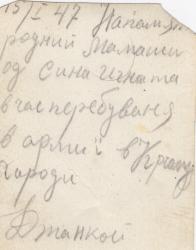 15/I 47 На памят
родний Мамаши
од сина Игната
в час перебуваня
в армиї в Криму
городи
Джанкой